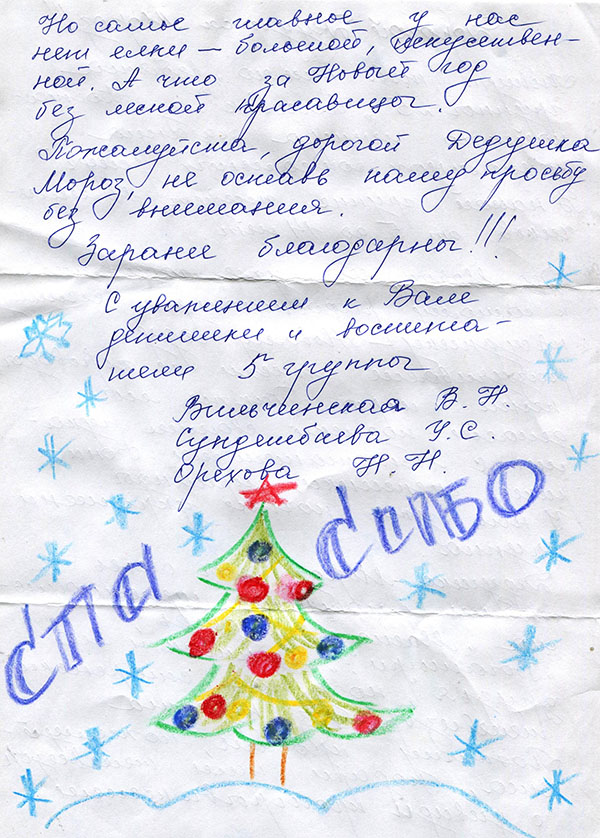 Но самое главное у нас
нет елки — большой, искусствен-
ной. А что за Новый год
без лесной красавицы.
Пожалуйста, дорогой Дедушка
Мороз, не оставь нашу просьбу
без внимания.
Заранее благодарны!!!
С уважением к Вам
детишки и воспита-
тели 5 группы
Вильчинская В. Н.
Сундешбаева У. С.
Орехова Н. Н.
СПА СИБО